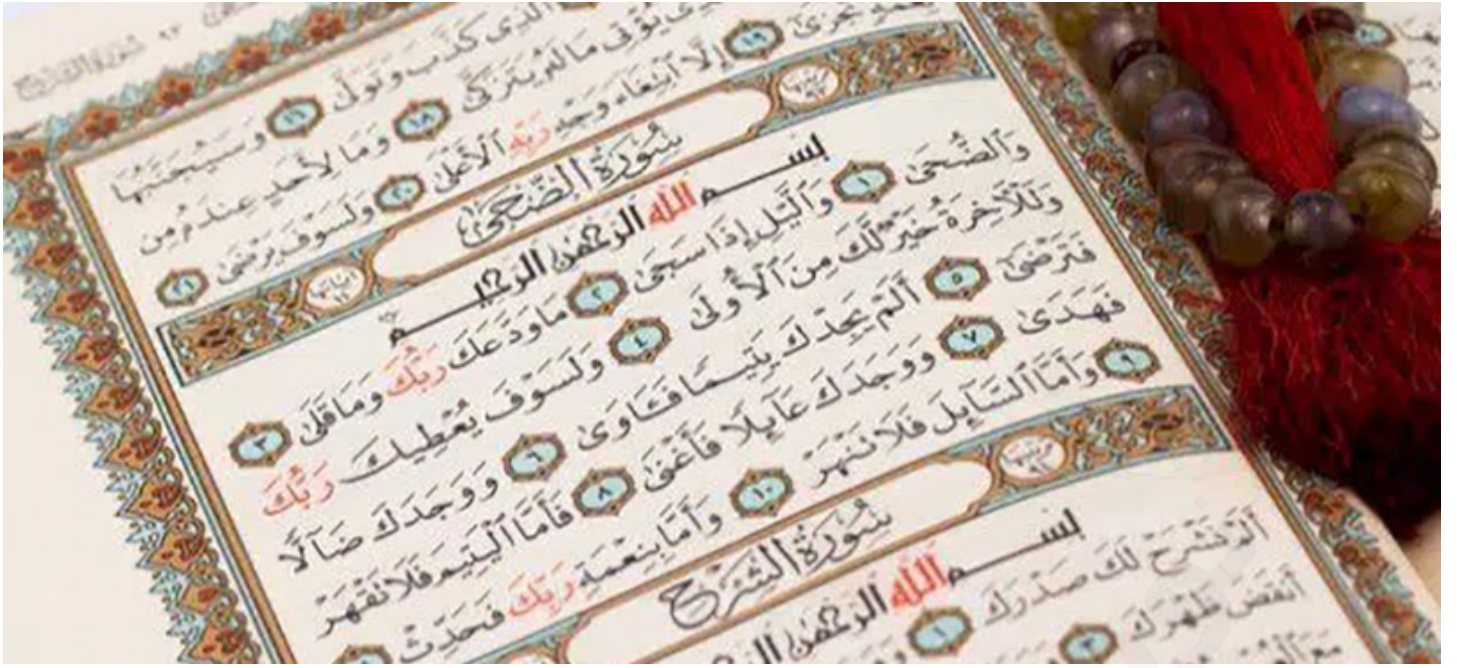 ٱلَّذِى كَذَّبَ وَتَوَلَّىٰ ١٦ وَسَيُجَنَّبُهَا
يُؤْتِى مَالَهُۥ يَتَزَكَّىٰ ١٨ وَمَا لِأَحَدٍ عِندَهُۥ مِن
تُجْزَىٰٓ ١٩ إِلَّا ٱبْتِغَآءَ وَجْهِ رَبِّهِ ٱلْأَعْلَىٰ ٢٠ وَلَسَوْفَ يَرْضَىٰ ٢١
سُورَةُ الضُّحَىٰ
بِسْمِ اللَّهِ الرَّحْمَٰنِ الرَّحِيمِ
وَٱلضُّحَىٰ ١ وَٱلَّيْلِ إِذَا سَجَىٰ ٢ مَا وَدَّعَكَ رَبُّكَ وَمَا قَلَىٰ ٣
وَلَلْـَٔاخِرَةُ خَيْرٌ لَّكَ مِنَ ٱلْأُولَىٰ ٤ وَلَسَوْفَ يُعْطِيكَ رَبُّكَ
فَتَرْضَىٰٓ ٥ أَلَمْ يَجِدْكَ يَتِيمًا فَـَٔاوَىٰ ٦ وَوَجَدَكَ ضَآلًّا
فَهَدَىٰ ٧ وَوَجَدَكَ عَآئِلًا فَأَغْنَىٰ ٨ فَأَمَّا ٱلْيَتِيمَ فَلَا تَقْهَرْ
٩ وَأَمَّا ٱلسَّآئِلَ فَلَا تَنْهَرْ ١٠ وَأَمَّا بِنِعْمَةِ رَبِّكَ فَحَدِّثْ
سُورَةُ الشَّرْحِ
بِسْمِ اللَّهِ الرَّحْمَٰنِ
أَلَمْ نَشْرَحْ لَكَ صَدْرَكَ ١
أَنقَضَ ظَهْرَكَ ٣